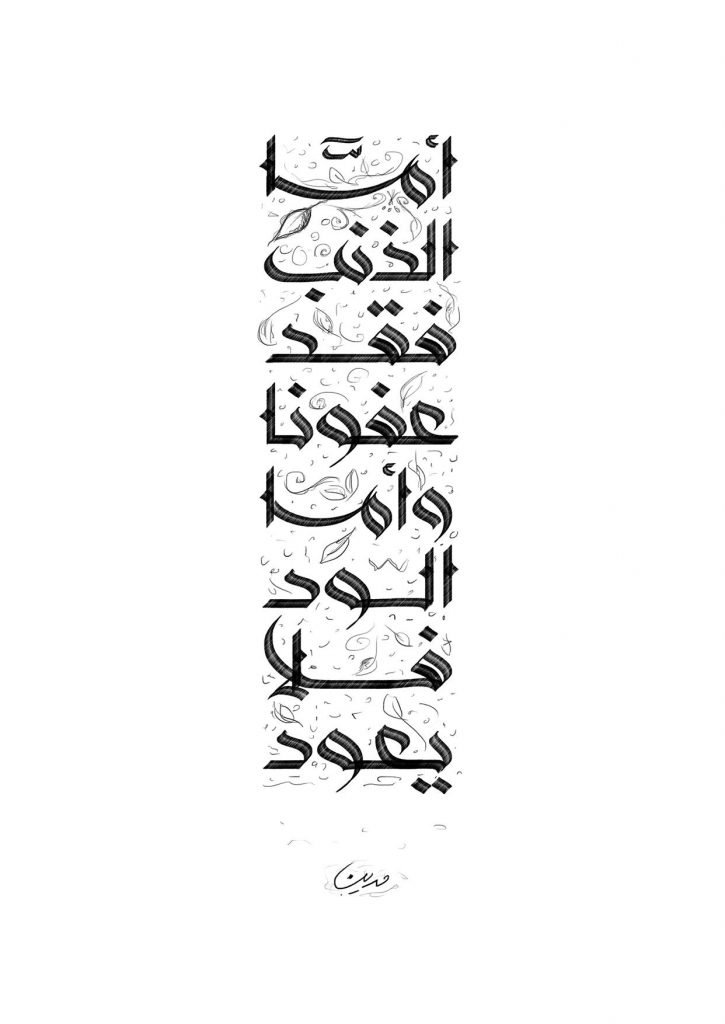 أمّا
الذنب
فقد
عفونا
وأما
الود
فلا
يعود
مدين